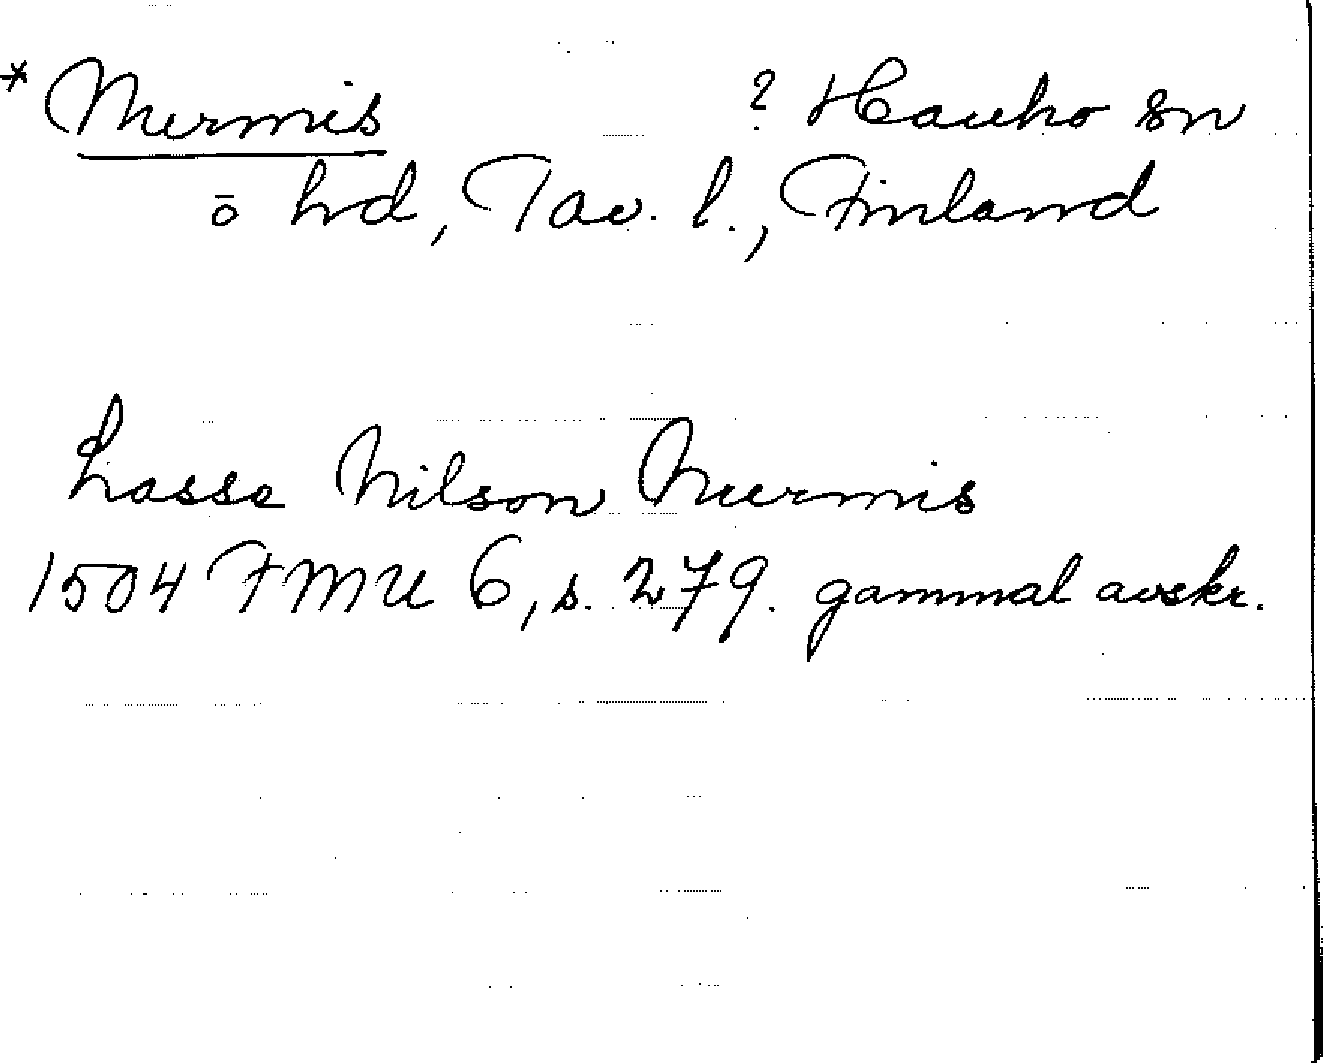 * Nurmis ? Hauho sn
ō hd, Tav. l., Finland
Lasse Nilson Nurmis
1504 FMU 6, s. 279. gammal avskr.